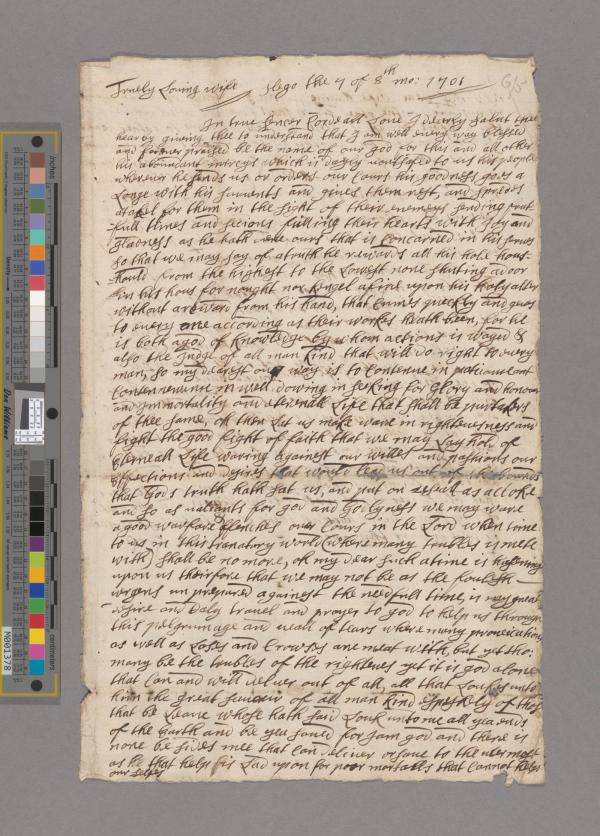 Truely Loving wife Slego the 7 of 8th mo: 1701
6/5
In true sincer Love I dearly salut thee
hearby giveing thee to understand that I am well every way blessed
and for ever praised be the name of our god for this and all other
his abounant mercys which is dayly vouchsafed to us his people
wherever he sends us or orders our Cours his goodness goes a
Longe with his sarvents and gives them rest and spreds
a tabel for them in the sight of their enemys sending frut
full times and sesions filling their hearts with Joy and
gladness as he hath ours that is Concarned in his
so that we may say of a truth he rewards all his hole hous-
hould from the highest to the Lowest none shuting a door
in his hous for nought nor kingel a fire upon his holy alter
without a reward from his hand, that Cums queckly and gives
to every one according as their workes heath been, for he
is both a god of knowledge by whom actions is wayed &
also the Judge of all man kind that will do right to every
man, so my dearest our way is to Contenue in
in well dowing in seking for Glory and honour
and Immortality and eternall Life that shall be
of thee same, oh then Let us make ware in righteousness and
fight the good fight of faith that we may Lay hol of
Eternall Life waring against our willes and pashons our
affections and desires that would Lead us out of the bounds
that Gods truth hath sat us, and put on as a cloke
and so as valiants for god and Godlyness we may ware
a good warfare Cours in the Lord when time
to us in this tranatary world (where many troubles is mete
with) shall be no more, oh my dear such a time is hasening
upon us theirfore that we may not be as the foulesh
vergens un prepared againest the needfull time, is my great
desire and Daly travel and prayer to god to help us through
this pelgrumage and veall of tears where many provoications
as well as Loses and Crosses are meat with, but yet tho:
many be the troubles of the righteues yet it is god alone
that Can and will deliver out of all, all that Louks unto
him the great saviour of all man kind Speshely of thos
that be Leave whose hath said Louk unto me all yea ends
of the Earth and be yea saved for I am god and there is
none be sides mee that Can deliver or save to the utermost
as he that help is Lad upon for poor mortalls that Cannot help
our selfes
inches
centimeters
Don Williams
M001378